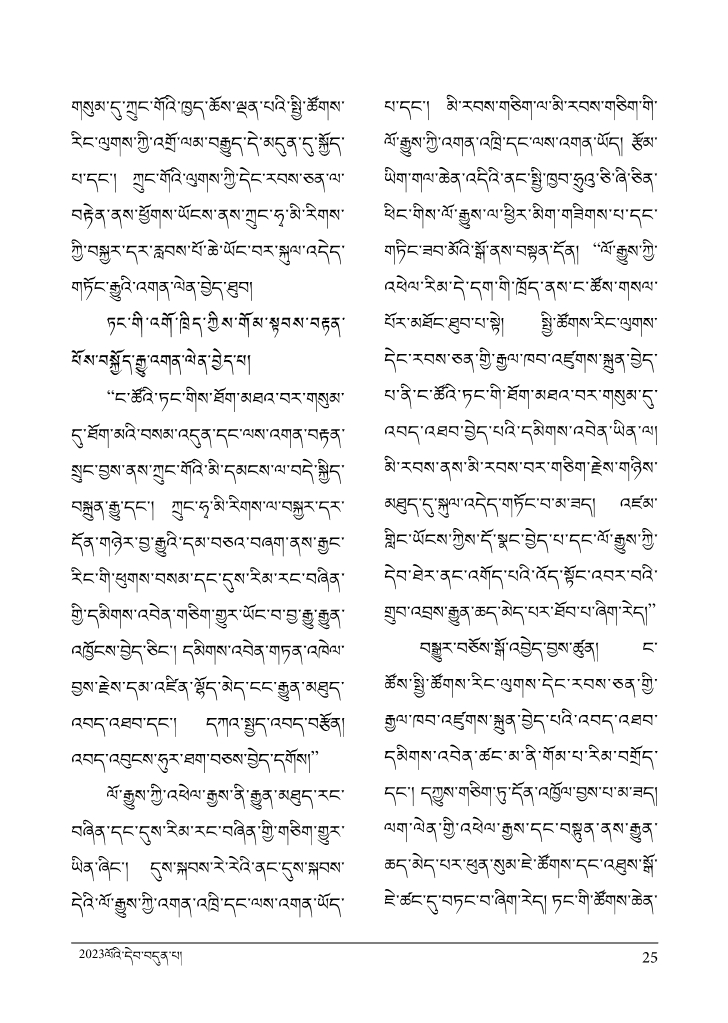 གསུམ་དུ་ཀྲུང་གོའི་ཁྱད་ཆོས་ལྡན་པའི་སྤྱི་ཚོགས་
རིང་ལུགས་ཀྱི་འགྲོ་ལམ་བརྒྱུད་དེ་མདུན་དུ་སྐྱོད་
པ་དང་། ཀྲུང་གོའི་ལུགས་ཀྱི་དེང་རབས་ཅན་ལ་
བརྟེན་ནས་ཕྱོགས་ཡོངས་ནས་ཀྲུང་ཧྭ་མི་རིགས་
ཀྱི་བསྐྱར་དར་རླབས་པོ་ཆེ་ཡོང་བར་སྐུལ་འདེད་
གཏོང་རྒྱུའི་འགན་ལེན་བྱེད་ཐུབ།
ཏང་གི་འགོ་ཁྲིད་ཀྱིས་གོམ་སྟབས་བརྟན་
པོས་བསྐྱོད་རྒྱུ་འགན་ལེན་བྱེད་པ།
“ང་ཚོའི་ཏང་གིས་ཐོག་མཐའ་བར་གསུམ་
དུ་ཐོག་མའི་བསམ་འདུན་དང་ལས་འགན་བརྟན་
སྲུང་བྱས་ནས་ཀྲུང་གོའི་མི་དམངས་ལ་བདེ་སྐྱིད་
བསྐྲུན་རྒྱུ་དང་། ཀྲུང་ཧྭ་མི་རིགས་ལ་བསྐྱར་དར་
དོན་གཉེར་བྱ་རྒྱུའི་དམ་བཅའ་བཞག་ནས་རྒྱང་
རིང་གི་ཕུགས་བསམ་དང་དུས་རིམ་རང་བཞིན་
གྱི་དམིགས་འབེན་གཅིག་གྱུར་ཡོང་བ་བྱ་རྒྱུ་རྒྱུན་
འཁྱོངས་བྱེད་ཅིང་། དམིགས་འབེན་གཏན་འཁེལ་
བྱས་རྗེས་དམ་འཛིན་ལྷོད་མེད་ངང་རྒྱུན་མཐུད་
འབད་འཐབ་དང་། དཀའ་སྤྱད་འབད་བརྩོན།
འབད་འབུངས་ཧུར་ཐག་བཅས་བྱེད་དགོས།”
ལོ་རྒྱུས་ཀྱི་འཕེལ་རྒྱས་ནི་རྒྱུན་མཐུད་རང་
བཞིན་དང་དུས་རིམ་རང་བཞིན་གྱི་གཅིག་གྱུར་
ཡིན་ཞིང་། དུས་སྐབས་རེ་རེའི་ནང་དུས་སྐབས་
དེའི་ལོ་རྒྱུས་ཀྱི་འགན་འཁྲི་དང་ལས་འགན་ཡོད་
པ་དང་། མི་རབས་གཅིག་ལ་མི་རབས་གཅིག་གི་
ལོ་རྒྱུས་ཀྱི་འགན་འཁྲི་དང་ལས་འགན་ཡོད། རྩོམ་
ཡིག་གལ་ཆེན་འདིའི་ནང་སྤྱི་ཁྱབ་ཧྲུའུ་ཅི་ཞི་ཅིན་
ཕིང་གིས་ལོ་རྒྱུས་ལ་ཕྱིར་མིག་གཟིགས་པ་དང་
གཏིང་ཟབ་མོའི་སྒོ་ནས་བསྟན་དོན། “ལོ་རྒྱུས་ཀྱི་
འཕེལ་རིམ་དེ་དག་གི་ཁྲོད་ནས་ང་ཚོས་གསལ་
པོར་མཐོང་ཐུབ་པ་སྟེ། སྤྱི་ཚོགས་རིང་ལུགས་
དེང་རབས་ཅན་གྱི་རྒྱལ་ཁབ་འཛུགས་སྐྲུན་བྱེད་
པ་ནི་ང་ཚོའི་ཏང་གི་ཐོག་མཐའ་བར་གསུམ་དུ་
འབད་འཐབ་བྱེད་པའི་དམིགས་འབེན་ཡིན་ལ།
མི་རབས་ནས་མི་རབས་བར་གཅིག་རྗེས་གཉིས་
མཐུད་དུ་སྐུལ་འདེད་གཏོང་བ་མ་ཟད། འཛམ་
གླིང་ཡོངས་ཀྱིས་དོ་སྣང་བྱེད་པ་དང་ལོ་རྒྱུས་ཀྱི་
དེབ་ཐེར་ནང་འགོད་པའི་འོད་སྟོང་འབར་བའི་
གྲུབ་འབྲས་རྒྱུན་ཆད་མེད་པར་ཐོབ་པ་ཞིག་རེད།”
བསྒྱུར་བཅོས་སྒོ་འབྱེད་བྱས་ཚུན། ང་
ཚོས་སྤྱི་ཚོགས་རིང་ལུགས་དེང་རབས་ཅན་གྱི་
རྒྱལ་ཁབ་འཛུགས་སྐྲུན་བྱེད་པའི་འབད་འཐབ་
དམིགས་འབེན་ཚང་མ་ནི་གོམ་པ་རིམ་བགྲོད་
དང་། དཀྱུས་གཅིག་ཏུ་དོན་འཁྱོལ་བྱས་པ་མ་ཟད།
ལག་ལེན་གྱི་འཕེལ་རྒྱས་དང་བསྟུན་ནས་རྒྱུན་
ཆད་མེད་པར་ཕུན་སུམ་ཇེ་ཚོགས་དང་འཐུས་སྒོ་
ཇེ་ཚང་དུ་བཏང་བ་ཞིག་རེད། ཏང་གི་ཚོགས་ཆེན་
2023ལོའི་དེབ་བདུན་པ།
25